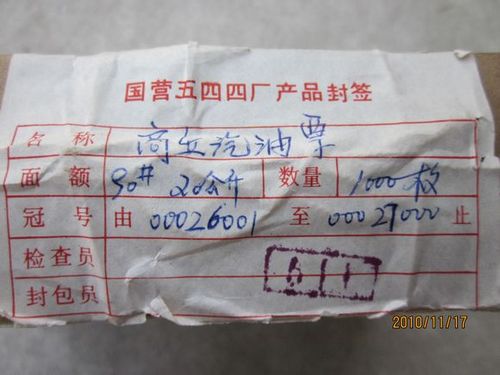 国营五四四厂产品封签
名称 商丘汽油票
面额 90# 20公升 数量 1000枚
冠号 由 00026001 至 00027000 止
检查员
封包员
61
2010/11/17